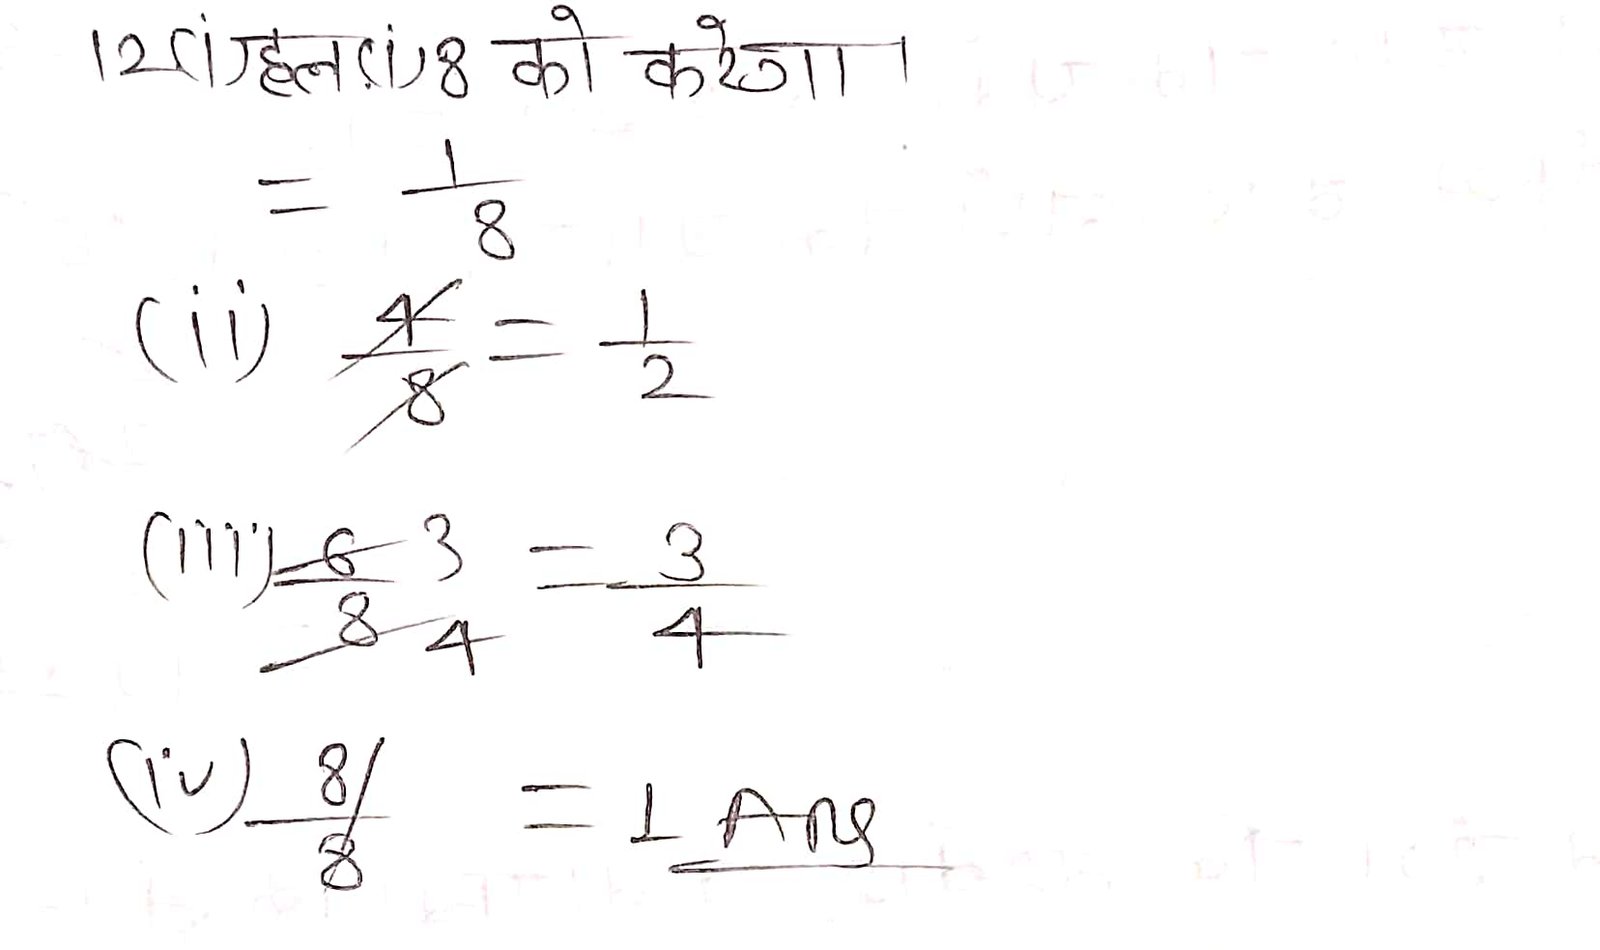 12(i) हल (i) 8 को करेगा।
= 1/8
(ii) 4/8 = 1/2
(iii) 6/8 3/4 = 3/4
(iv) 8/8 = 1 Ans